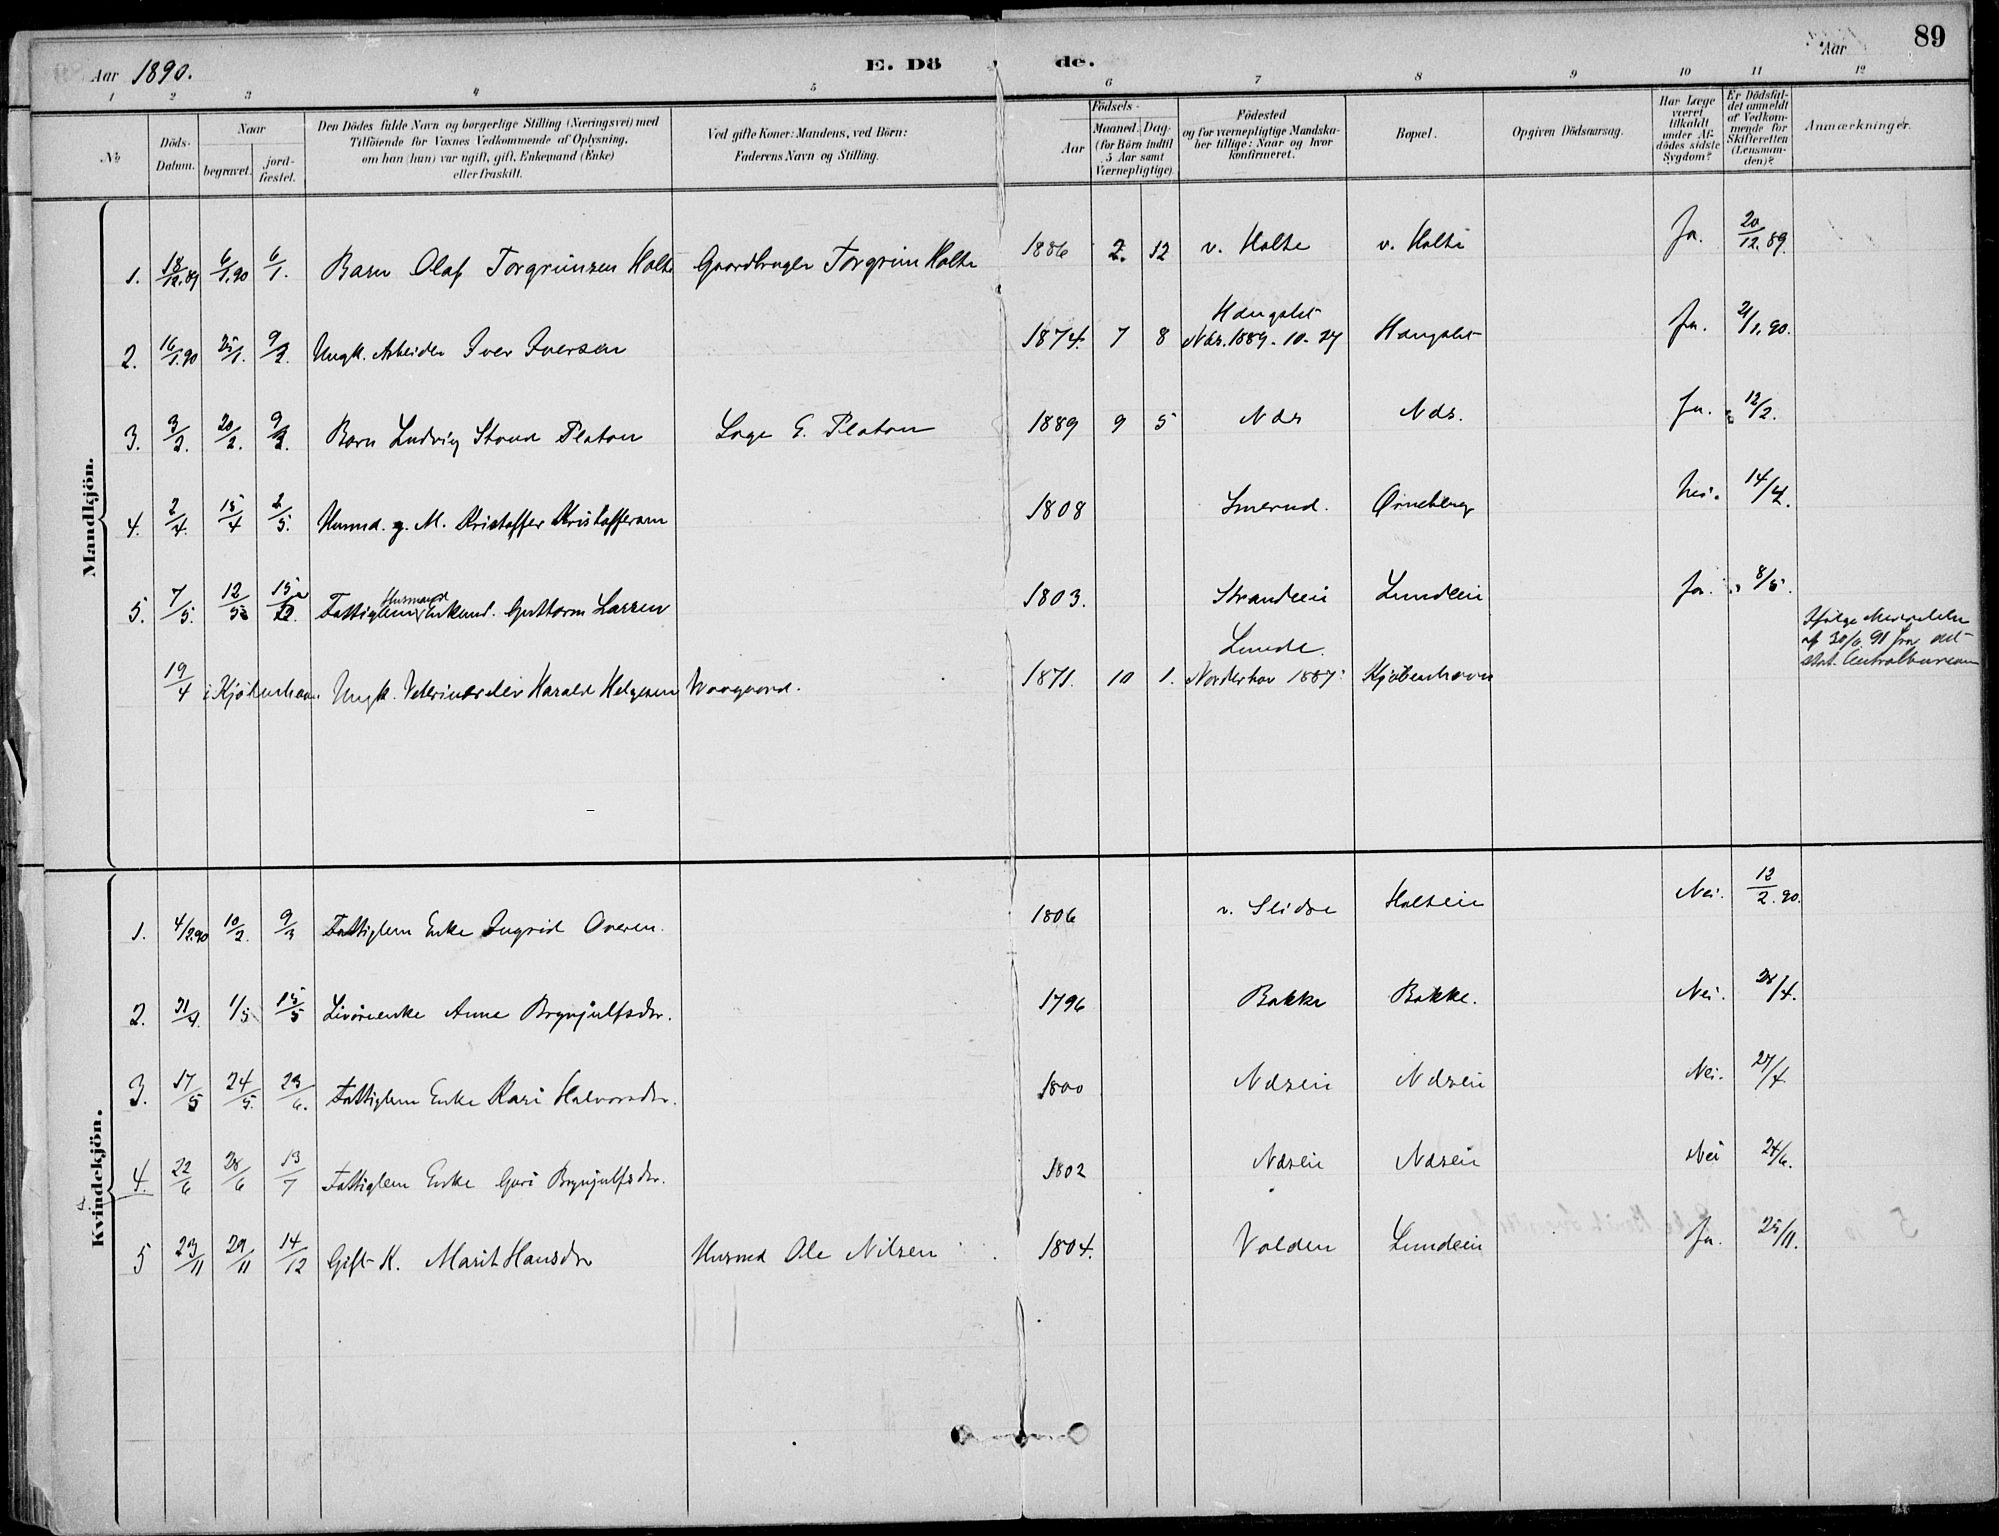 89
Aar 1890.
E. Dö de.
Aar
1 2 3 4 5 6 7 8 9 10 11 12
No
Döds-Datum.
Naar
begravet.
jord-fæstet.
Den Dödes fulde Navn og borgerlige Stilling (Næringsvei) med
Tilföiende for Voxnes Vedkommende af Oplysning,
om han (hun) var ugift, gift, Enkemand (Enke)
eller fraskilt.
Ved gifte Koner: Mandens, ved Börn:
Faderens Navn og Stilling.
Födsels-
Aar
Maaned. Dag.
(for Börn indtil
5 Aar samt
Værnepligtige)
Födested
og for værnepligtige Mandska-
ber tillige: Naar og hvor
konfirmeret.
Bopæl.
Opgiven Dödsaarsag.
Har Læge
været
tilkaldt
under Af-
dödes sidste
Sygdom?
Er Dödsfal-
det anmeldt
af Vedkom-
mende for
Skifteretten
(Lensman-
den)?
Anmærkninger.
Mandkjön.
1. 18/12.89 6/1.90 6/1. Barn Olaf Torgrimsen Holte Gaardbruger Torgrim Holte 1886 2. 12 v. Holte v. Holte Ja. 20/12.89.
2. 16/1.90 25/1. 9/2. Ungk. Arbeider Iver Iversen 1874. 7 8 Næs. 1889-10-27 Ja. 21/1.90.
3. 9/2. 20/2. 9/3. Barn Ludvig Stoud Platou Læge E. Platou 1889 9 5 Næs Næs. Ja. 12/2.
4. 2/4. 15/4 2/5. Husmd. g. M. Kristoffer Kristoffersen 1808 Smerud. Örneberg Nei. 14/4.
5. 7/5. 12/5 15/12. Fattiglem Husmand Enkemd. Guttorm Larsen 1803. Strandeen Lundeen Ja. 8/5.
19/4 i Kjöbenhavn. Ungk. Veterinærelev Harald Helgesen Waagaard. 1871. 10 1. Lunde. Norderhov 1887. Kjöbenhavn
Ifölge Meddelelse
af 30/6 90 fra det
stat. Centralbureau
Kvindekjön.
1. 4/2.90 10/2. 9/3 Fattiglem Enke Ingrid Overen. 1806 v. Slidre Holteen Nei. 12/2.90.
2. 21/4. 1/5 15/5 Livöreenke Anne Brynjulfsdtr. 1796 Bakke Bakke. Nei. 28/4.
3. 17/5 24/5. 29/6. Fattiglem Enke Kari Halvorsdtr. 1800 Næseen Næseen Nei. 27/4.
4. 22/6 28/6 13/7 Fattiglem Enke Guri Brynjulfsdtr. 1802 Næseen Næseen Nei 24/6.
5 23/11 29/11 14/12 Gift K. Marit Hansdtr Husmd Ole Nilsen 1804. Volden Lundeen Ja. 25/11.